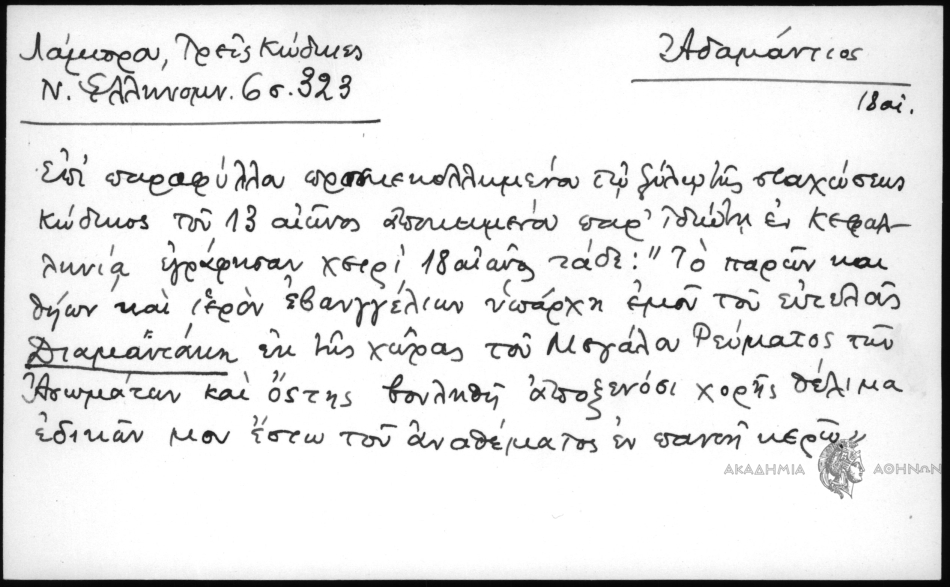 Λάμπρου, Τρεῖς Κώδικες
Ν. Ἑλληνομν. 6 σ. 323
Ἀδαμάντιος
18 αἰ.
Ἐπὶ παραφύλλου προσκεκολλημένου τῷ ξύλῳ τῆς σταχώσεως
κώδικος τοῦ 13 αἰῶνος ἀποκειμένου παρ' ἰδιώτῃ ἐν Κεφαλ-
ληνίᾳ ἐγράφησαν χειρὶ 18 αἰῶνος τάδε: "Τὸ παρὸν και
θήων καὶ ἱερὸν ἐβανγγέλιων ὑπάρχη ἐμοῦ τοῦ εὐτελοῦς
Διαμαντάκη ἐκ τῆς χώρας τοῦ Μεγάλου Ρεύματος τῶν
Ἀσωμάτων καὶ ὅστης βουληθῆ ἀποξενόσι χορῆς θέλιμα
ἐδικῶν μου ἔστω τοῦ ἀναθέματος ἐν παντὴ κερῶ"
ΑΚΑΔΗΜΙΑ ΑΘΗΝΩΝ